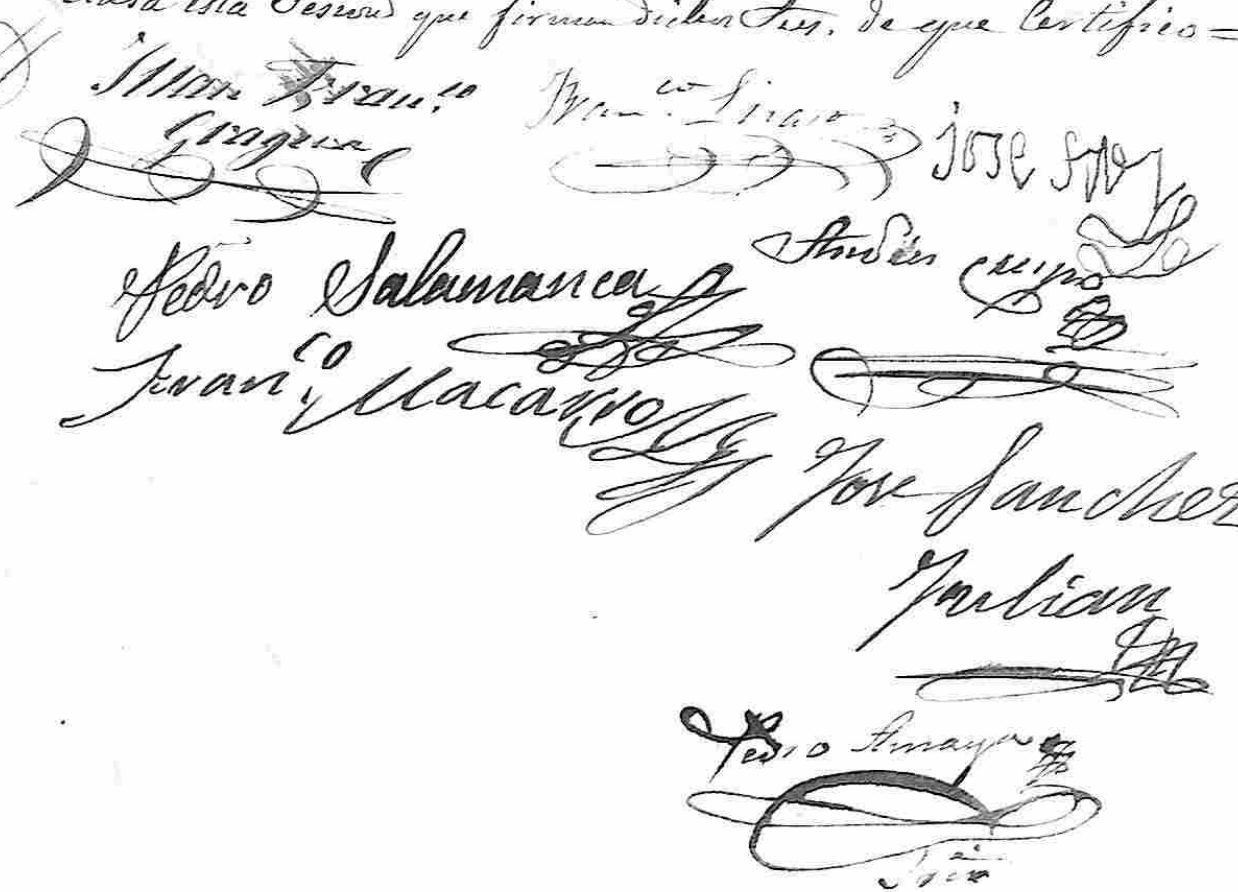 esta Sesion que firman dichos Sres. de que Certifico =
Juan Fran.co
Fran.co Linaro
José
Pedro Salamanca
Andres
Fran.co Macarro
José Sanchez
Julian
Pedro Amaya
Srio